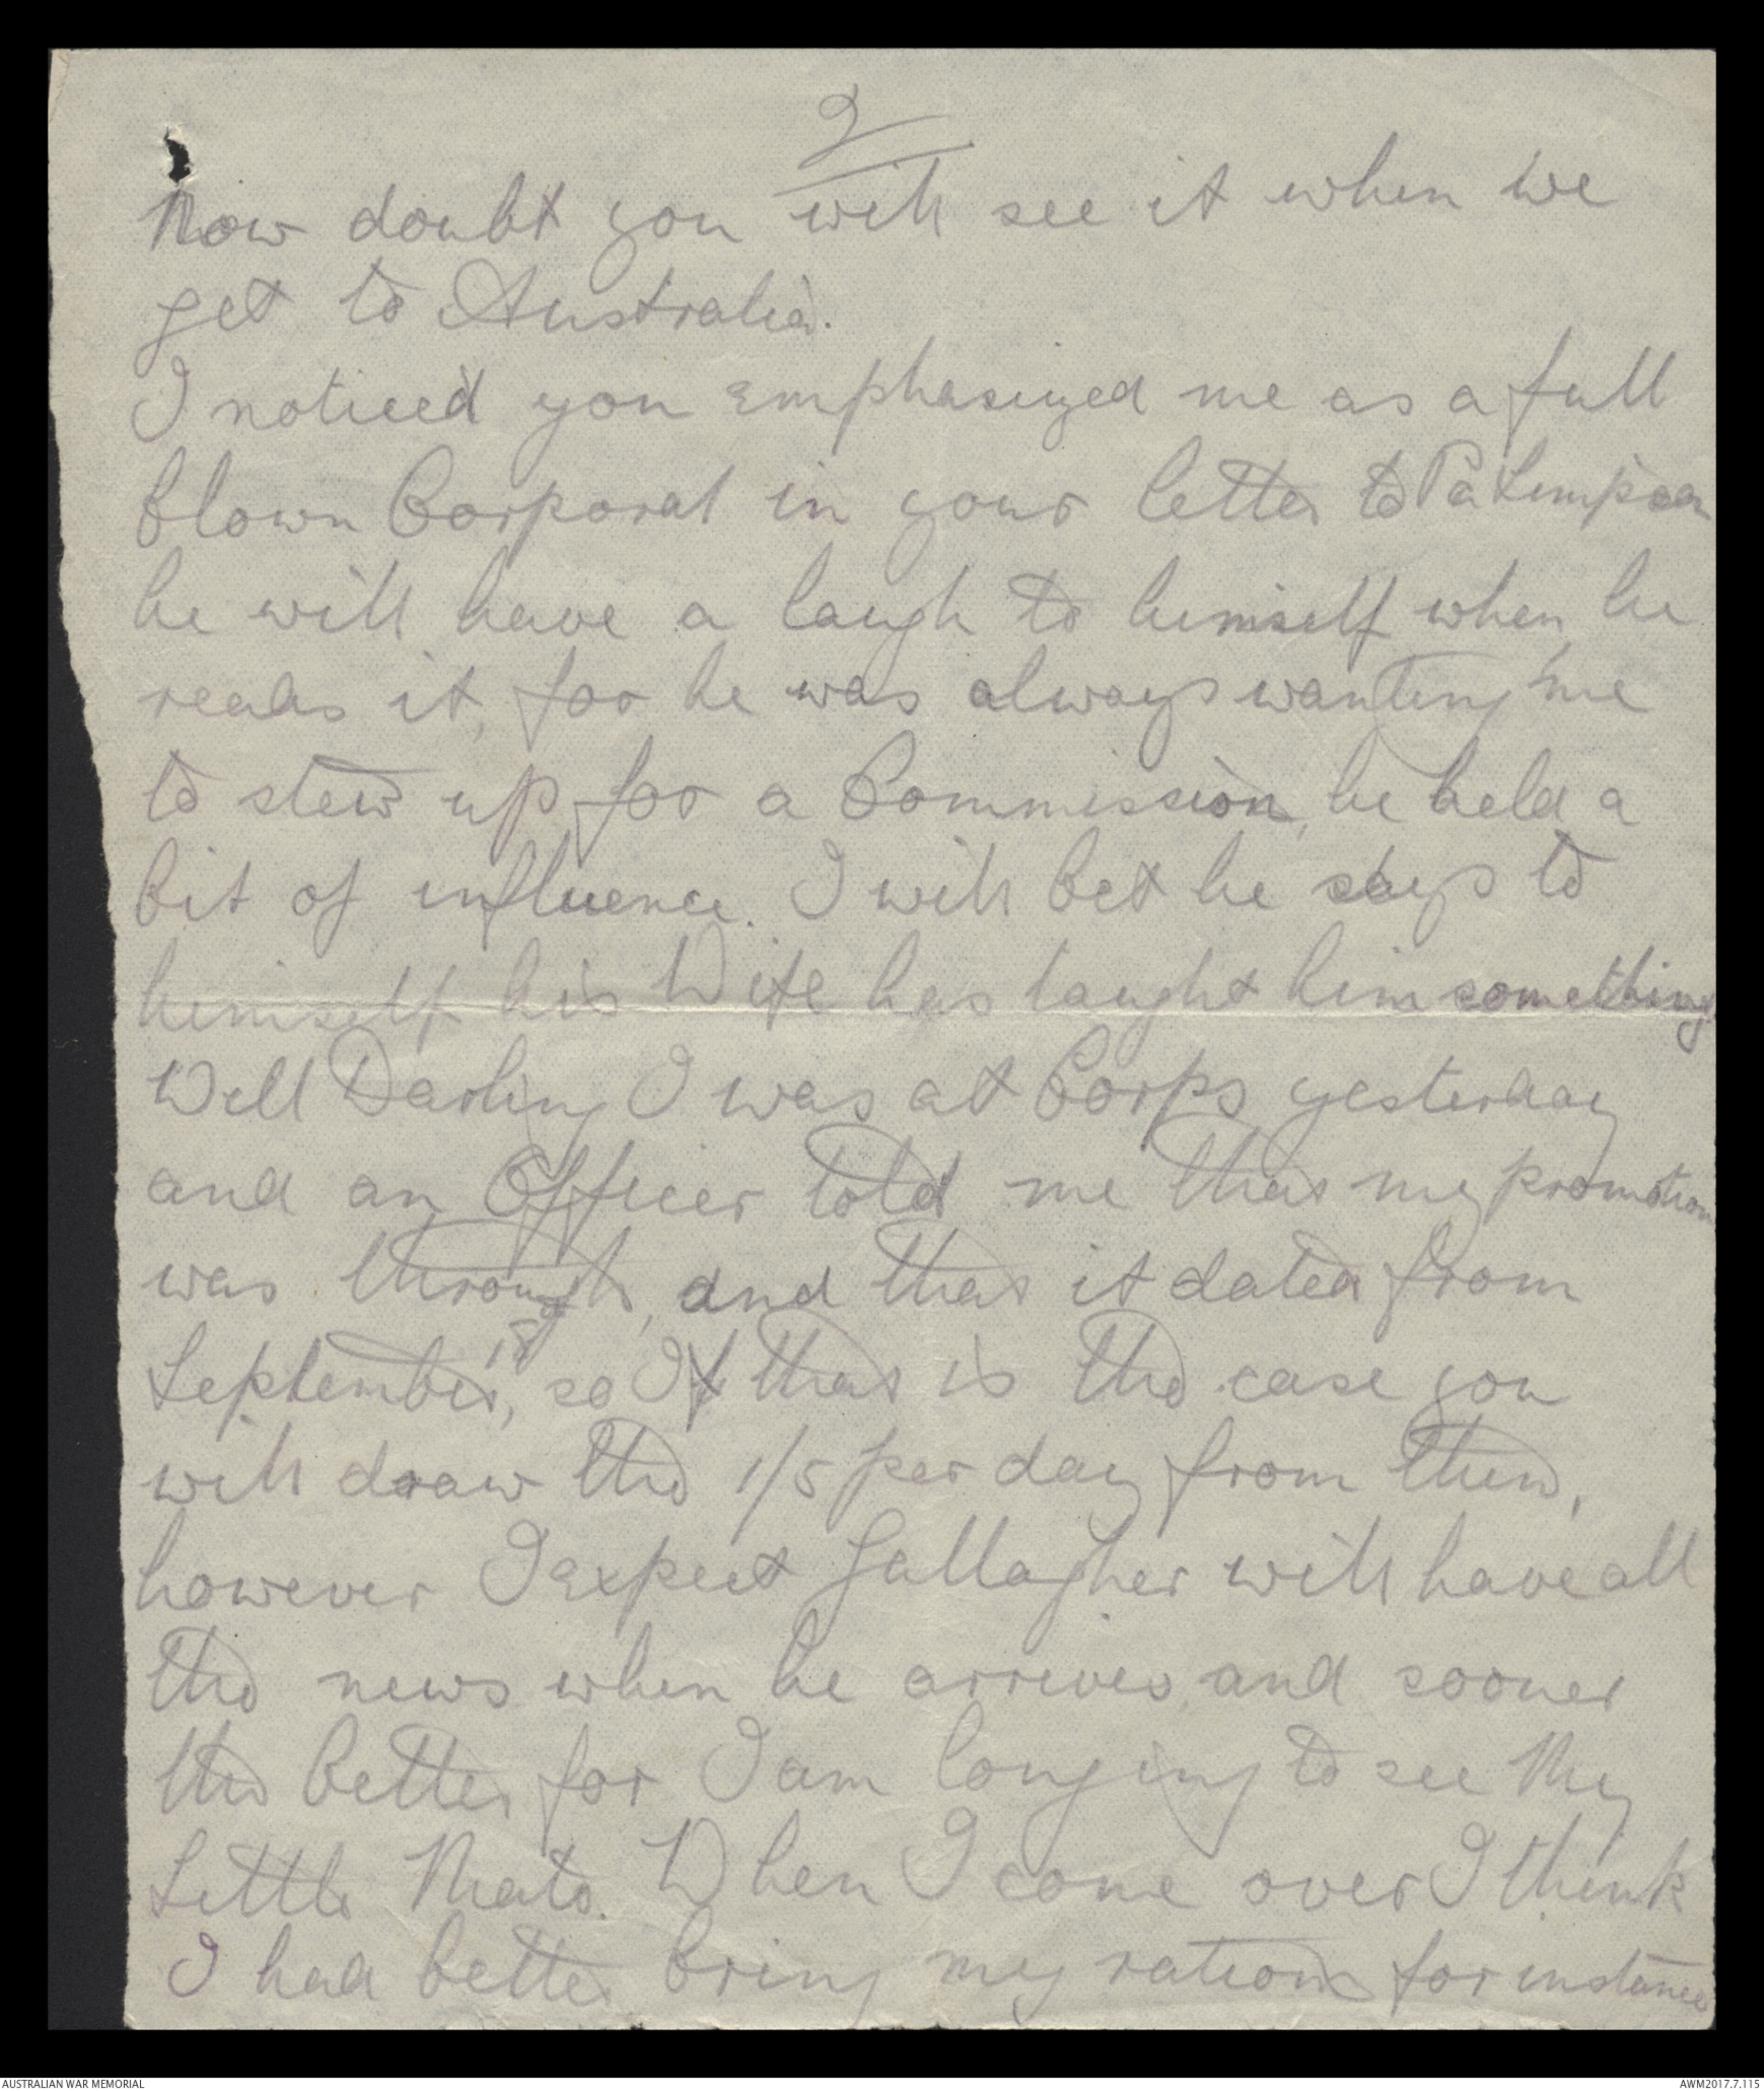 2
Now doubt you will see it when we
get to Australia.
I noticed you emphasized me as a full
blown Corporal in your letter to Pa Simpson
he will have a laugh to himself when he
reads it, for he was always wanting me
to stew up for a Commission, he held a
bit of influence. I will bet he says to
himself his Wife has taught him something
Well Darling I was at Corps yesterday
and an Officer told me that my promotion
was through, and that it dated from
September 18, so If that is the case you
will draw the 1/5 per day from then,
however I expect Gallagher will have all
the news when he arrives, and sooner
the better for I am longing to see My
Little Mate. When I come over I think
I had better bring my rations for instance
AUSTRALIAN WAR MEMORIAL
AWM2017.7.115